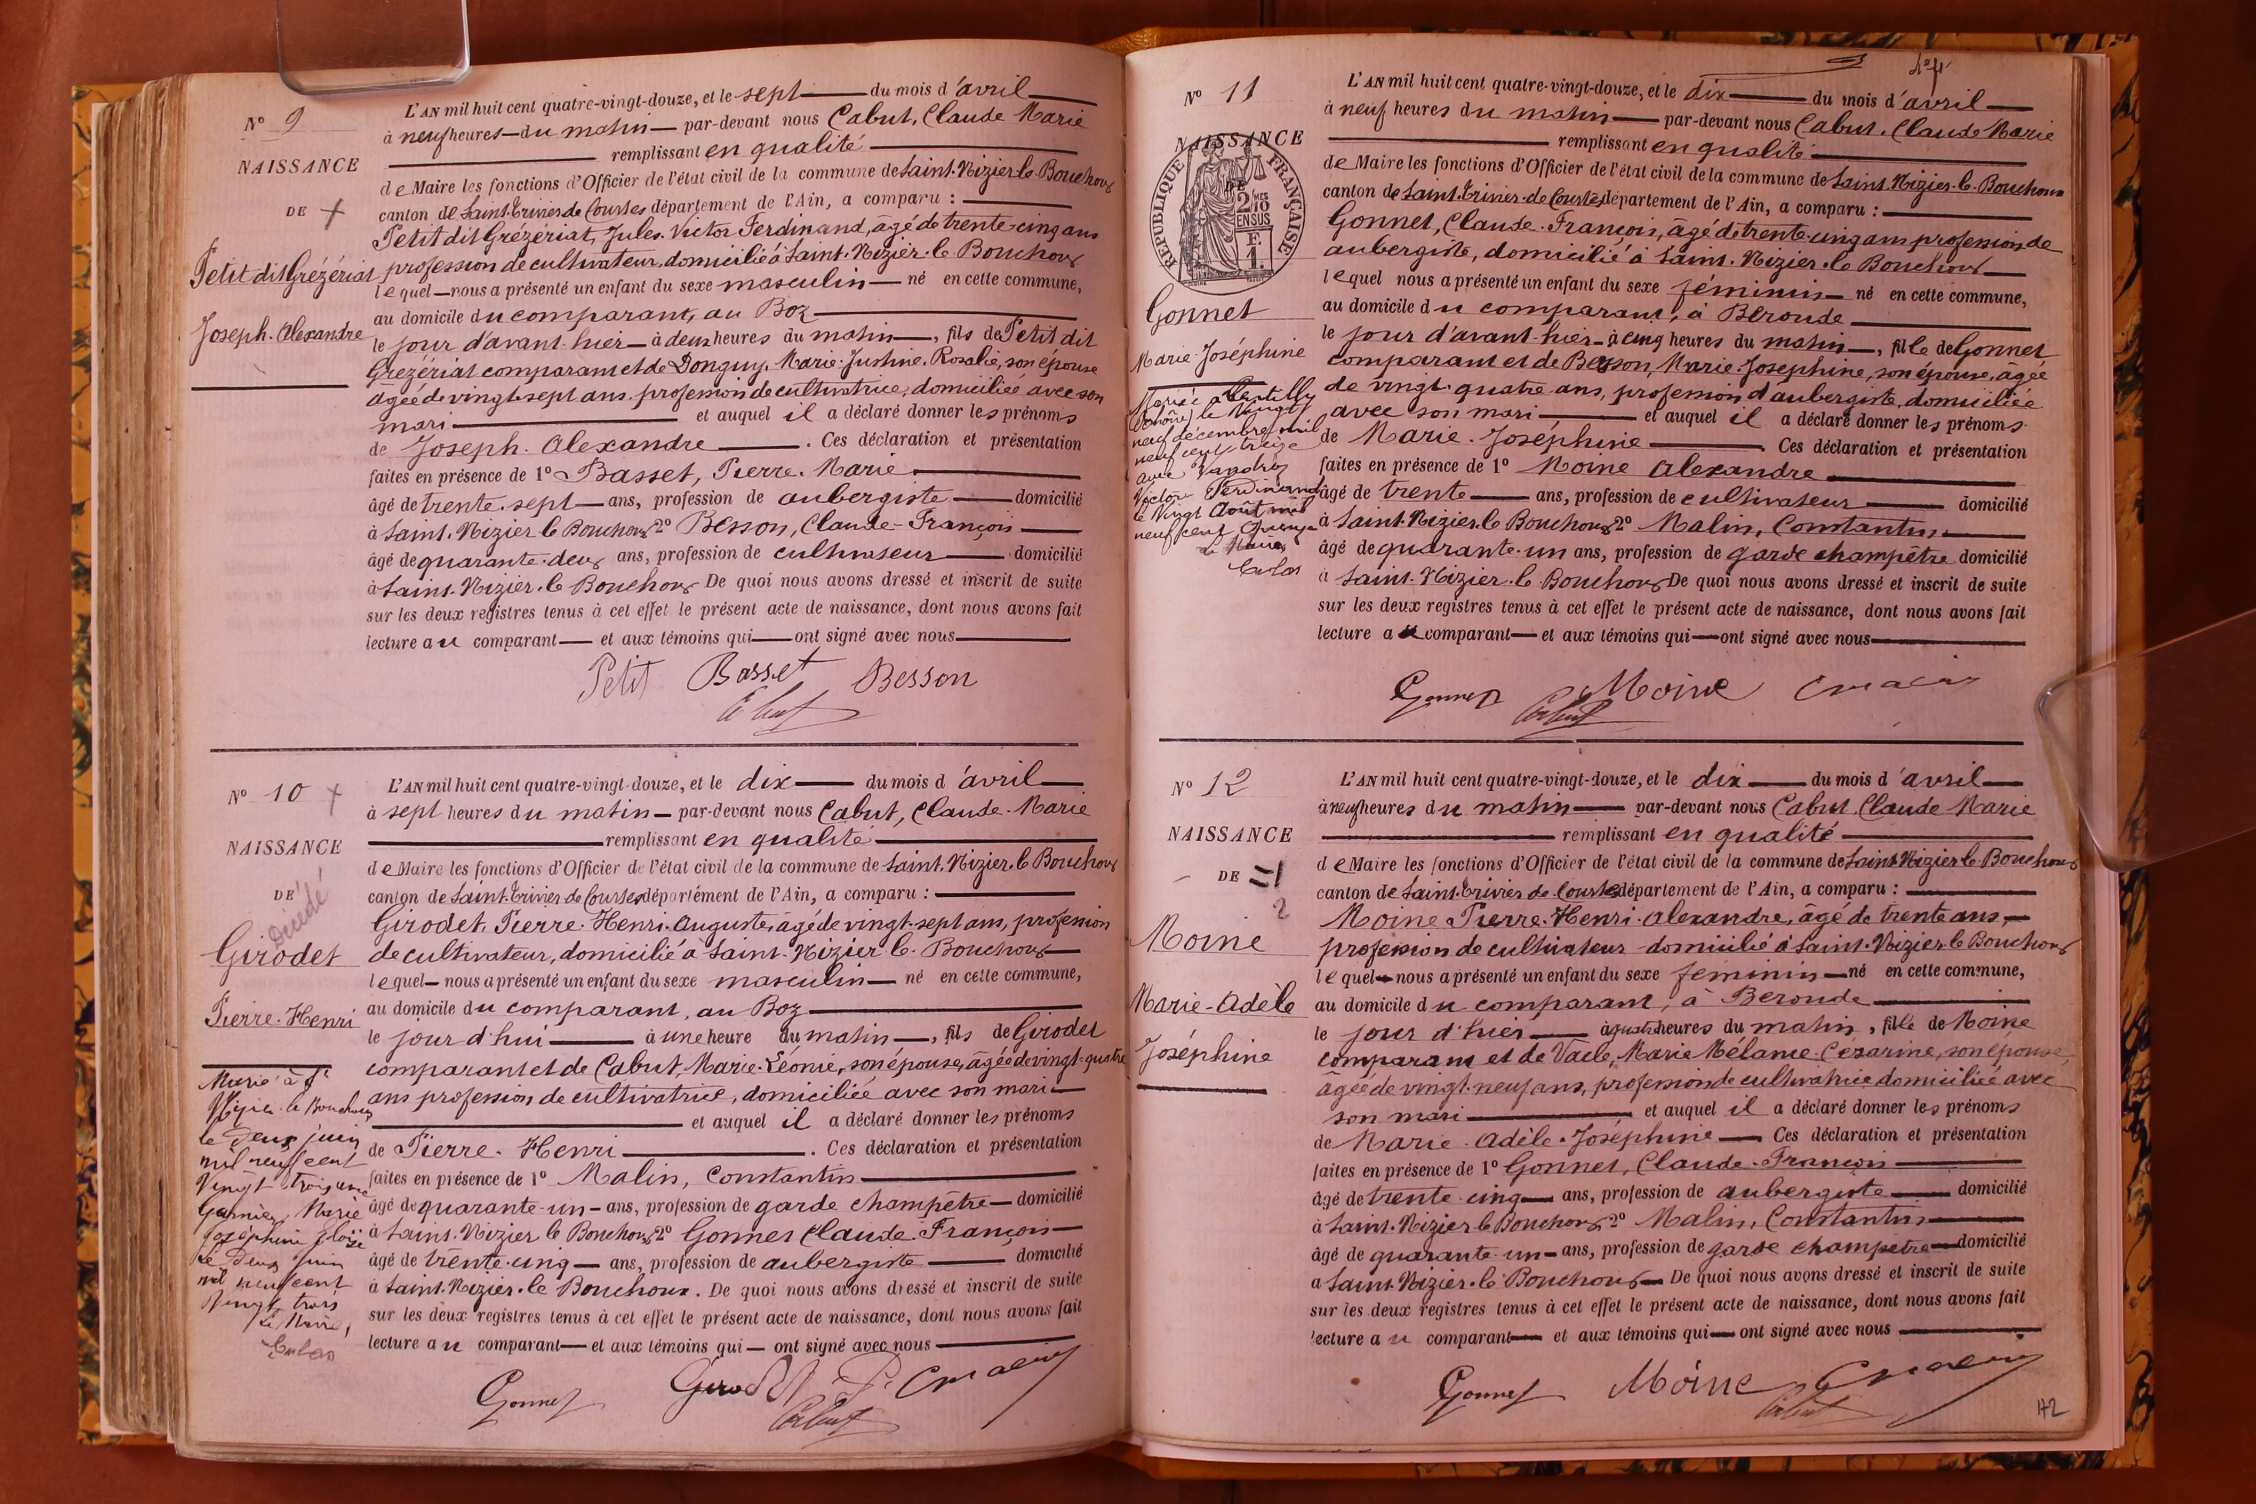 N° 9
NAISSANCE
DE
Petit dit Grézériat
Joseph. Alexandre
L'AN mil huit cent quatre-vingt-douze, et le sept du mois d'avril
à neuf heures du matin par-devant nous Cabut, Claude Marie
remplissant en qualité
de Maire les fonctions d'Officier de l'état civil de la commune de Saint. Nizier-le Bouchoux
canton de Saint. Trivier de Courtes département de l'Ain, a comparu :
Petit dit Grézériat, Jules. Victor Ferdinand, âgé de trente-cinq ans
profession de cultivateur, domicilié à Saint. Nizier. le Bouchoux
lequel nous a présenté un enfant du sexe masculin né en cette commune,
au domicile du comparant, au Boz
le jour d'avant-hier à deux heures du matin, fils de Petit dit
Grézériat comparant et de Donguy, Marie-Justine. Rosalie, son épouse
âgée de vingt-sept ans. profession de cultivatrice, domiciliée avec son
mari et auquel il a déclaré donner les prénoms
de Joseph. Alexandre. Ces déclaration et présentation
faites en présence de 1° Basset, Pierre. Marie
âgé de trente. sept ans, profession de aubergiste domicilié
à Saint. Nizier le Bouchoux 2° Besson, Claude-François
âgé de quarante. deux ans, profession de cultivateur domicilié
à Saint. Nizier. le Bouchoux De quoi nous avons dressé et inscrit de suite
sur les deux registres tenus à cet effet le présent acte de naissance, dont nous avons fait
lecture au comparant et aux témoins qui ont signé avec nous
Petit Basset Besson
Cabut
N° 10
NAISSANCE
DE
Décédé
Girodet
Pierre. Henri
Marié à St
Nizier le Bouchoux
le deux juin
mil neuf cent
vingt trois avec
Garnier, Marie
Joséphine Eloïse
Le deux juin
mil neuf cent
vingt trois
Le Maire,
L'AN mil huit cent quatre-vingt-douze, et le dix du mois d'avril
à sept heures du matin par-devant nous Cabut, Claude. Marie
remplissant en qualité
de Maire les fonctions d'Officier de l'état civil de la commune de Saint. Nizier. le Bouchoux
canton de Saint. Trivier de Courtes département de l'Ain, a comparu :
Girodet, Pierre. Henri. Auguste, âgé de vingt-sept ans, profession
de cultivateur, domicilié à Saint. Nizier le. Bouchoux
lequel nous a présenté un enfant du sexe masculin né en cette commune,
au domicile du comparant, au Boz
le jour d'hui à une heure du matin, fils de Girodet
comparant et de Cabut, Marie-Léonie, son épouse, âgée de vingt-quatre
ans profession de cultivatrice, domiciliée avec son mari
et auquel il a déclaré donner les prénoms
de Pierre. Henri. Ces déclaration et présentation
faites en présence de 1° Malin, Constantin
âgé de quarante-un ans, profession de garde champêtre domicilié
à Saint. Nizier le Bouchoux 2° Gonnet Claude-François
âgé de trente-cinq ans, profession de aubergiste domicilié
à Saint. Nizier. le Bouchoux. De quoi nous avons dressé et inscrit de suite
sur les deux registres tenus à cet effet le présent acte de naissance, dont nous avons fait
lecture au comparant et aux témoins qui ont signé avec nous
Gonnet Girodet C Malin
Cabut
N° 11
NAISSANCE
DE
RÉPUBLIQUE FRANÇAISE
2/10 EN SUS
Gonnet
Marie-Joséphine
Mariée à Chantilly
(Oise) le vingt
neuf décembre mil
neuf cent treize
avec
Victor Ferdinand
le vingt Août mil
neuf cent quinze
Le Maire,
L'AN mil huit cent quatre-vingt-douze, et le dix du mois d'avril
à neuf heures du matin par-devant nous Cabut. Claude Marie
remplissant en qualité
de Maire les fonctions d'Officier de l'état civil de la commune de Saint. Nizier. le. Bouchoux
canton de Saint. Trivier. de Courtes département de l'Ain, a comparu :
Gonnet, Claude. François, âgé de trente-cinq ans profession de
aubergiste, domicilié à Saint. Nizier. le Bouchoux
lequel nous a présenté un enfant du sexe féminin né en cette commune,
au domicile du comparant, à Béroude
le jour d'avant-hier à cinq heures du matin, fille de Gonnet
comparant et de Besson, Marie Joséphine, son épouse, âgée
de vingt-quatre ans, profession d'aubergiste, domiciliée
avec son mari et auquel il a déclaré donner les prénoms
de Marie. Joséphine Ces déclaration et présentation
faites en présence de 1° Moine Alexandre
âgé de trente ans, profession de cultivateur domicilié
à Saint. Nizier. le Bouchoux 2° Malin, Constantin
âgé de quarante-un ans, profession de garde champêtre domicilié
à Saint. Nizier. le Bouchoux De quoi nous avons dressé et inscrit de suite
sur les deux registres tenus à cet effet le présent acte de naissance, dont nous avons fait
lecture au comparant et aux témoins qui ont signé avec nous
Gonnet Moine C Malin
Cabut
N° 12
NAISSANCE
DE
2
Moine
Marie-Adèle
Joséphine
L'AN mil huit cent quatre-vingt-douze, et le dix du mois d'avril
à neuf heures du matin par-devant nous Cabut Claude Marie
remplissant en qualité
de Maire les fonctions d'Officier de l'état civil de la commune de Saint Nizier le Bouchoux
canton de Saint. Trivier de Courtes département de l'Ain, a comparu :
Moine Pierre. Henri. Alexandre, âgé de trente ans,
profession de cultivateur domicilié à Saint. Nizier le Bouchoux
lequel nous a présenté un enfant du sexe féminin né en cette commune,
au domicile du comparant, à Beroude
le jour d'hier à quatre heures du matin, fille de Moine
comparant et de Vacle, Marie Mélanie. Césarine, son épouse,
âgée de vingt-neuf ans, profession de cultivatrice domiciliée avec
son mari et auquel il a déclaré donner les prénoms
de Marie. Adèle. Joséphine Ces déclaration et présentation
faites en présence de 1° Gonnet, Claude. François
âgé de trente-cinq ans, profession de aubergiste domicilié
à Saint. Nizier le Bouchoux 2° Malin, Constantin
âgé de quarante-un ans, profession de garde champêtre domicilié
à Saint. Nizier. le Bouchoux De quoi nous avons dressé et inscrit de suite
sur les deux registres tenus à cet effet le présent acte de naissance, dont nous avons fait
lecture au comparant et aux témoins qui ont signé avec nous
Gonnet Moine C Malin
Cabut
172